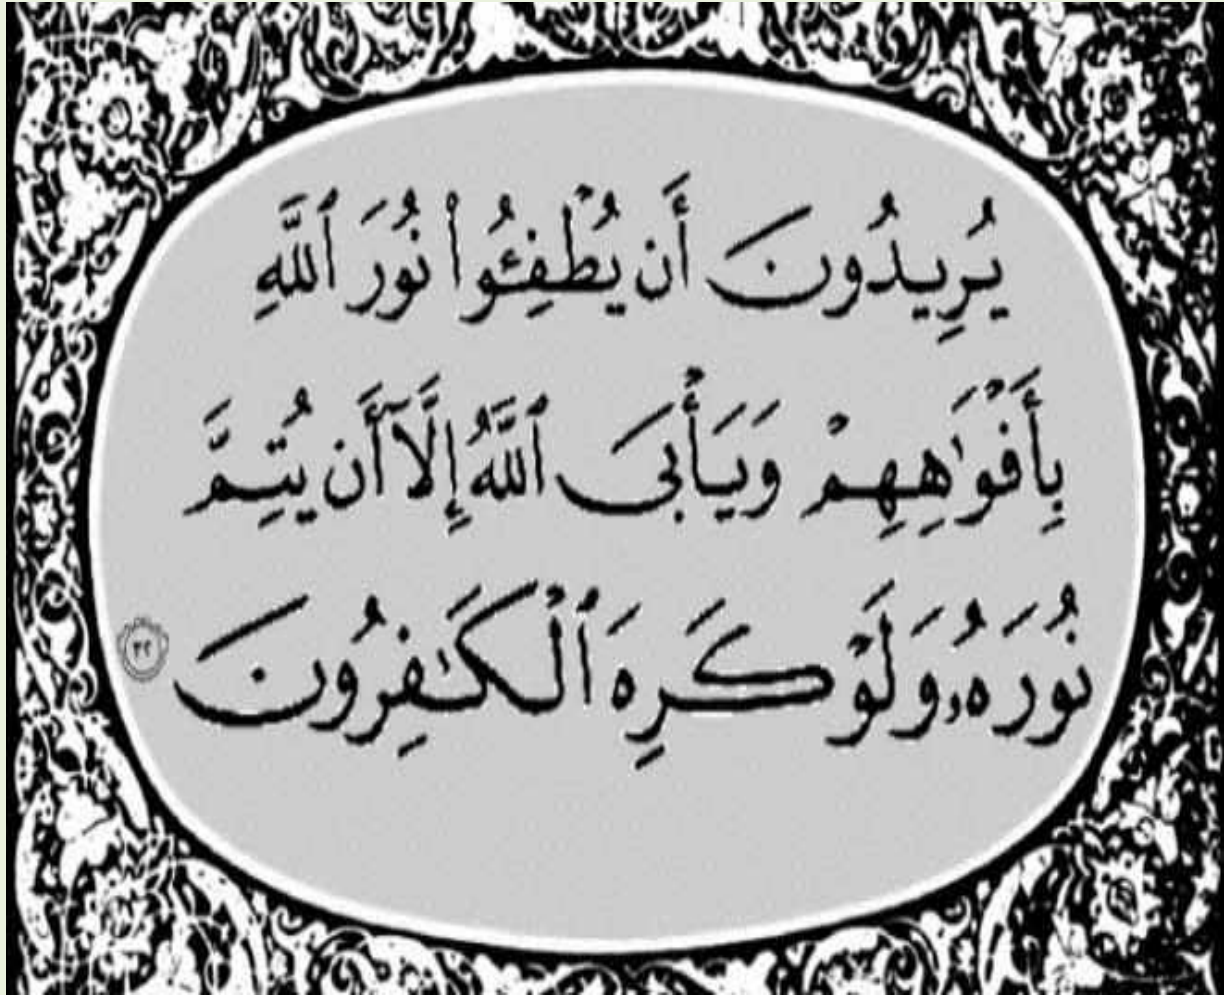 يُرِيدُونَ أَن يُطْفِـُٔوا۟ نُورَ ٱللَّهِ
بِأَفْوَٰهِهِمْ وَيَأْبَى ٱللَّهُ إِلَّآ أَن يُتِمَّ
نُورَهُۥ وَلَوْ كَرِهَ ٱلْكَـٰفِرُونَ ٣٢